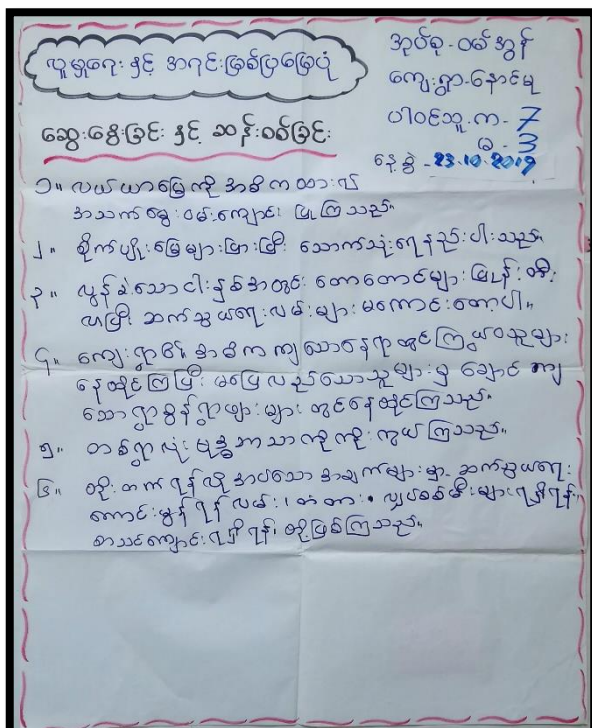 လူမှုရေး နှင့် အရင်းမြစ်ပြမြေပုံ
ဆွေးနွေးခြင်း နှင့် ဆန်းစစ်ခြင်း
အုပ်စု - ဝမ်အွန်
ကျေးရွာ - နောင်မု
ပါဝင်သူ . က - 7
ခ - 3
နေ့စွဲ - 23.10.2019
၁။ လယ်ယာမြေကို အဓိကထား၍
အသက်မွေးဝမ်းကျောင်း ပြုကြသည်။
၂။ စိုက်ပျိုးမြေများပြားပြီး သောက်သုံးရေနည်းပါးသည်။
၃။ လွန်ခဲ့သောငါးနှစ်အတွင်း တောတောင်များ ပြုန်းတီး
လာပြီး ဆက်သွယ်ရေးလမ်းများ မကောင်းတော့ပါ။
၄။ ကျေးရွာ၏ အဓိကကျသောနေရာတွင် ကြွယ်ဝသူများ
နေထိုင်ကြပြီး မပြေလည်သောသူများမှ ချောင်ကျ
သောရွာစွန်ရွာဖျားများ တွင်နေထိုင်ကြသည်။
၅။ တစ်ရွာလုံး ဗုဒ္ဓဘာသာကိုကိုးကွယ်ကြသည်။
၆။ တိုးတက်ရန်လိုအပ်သောအချက်များမှာ ဆက်သွယ်ရေး
ကောင်းမွန်ရန် လမ်း၊ တံတား၊ လျှပ်စစ်မီးများရရှိရန်၊
စာသင်ကျောင်းရရှိရန် တို့ဖြစ်ကြသည်။